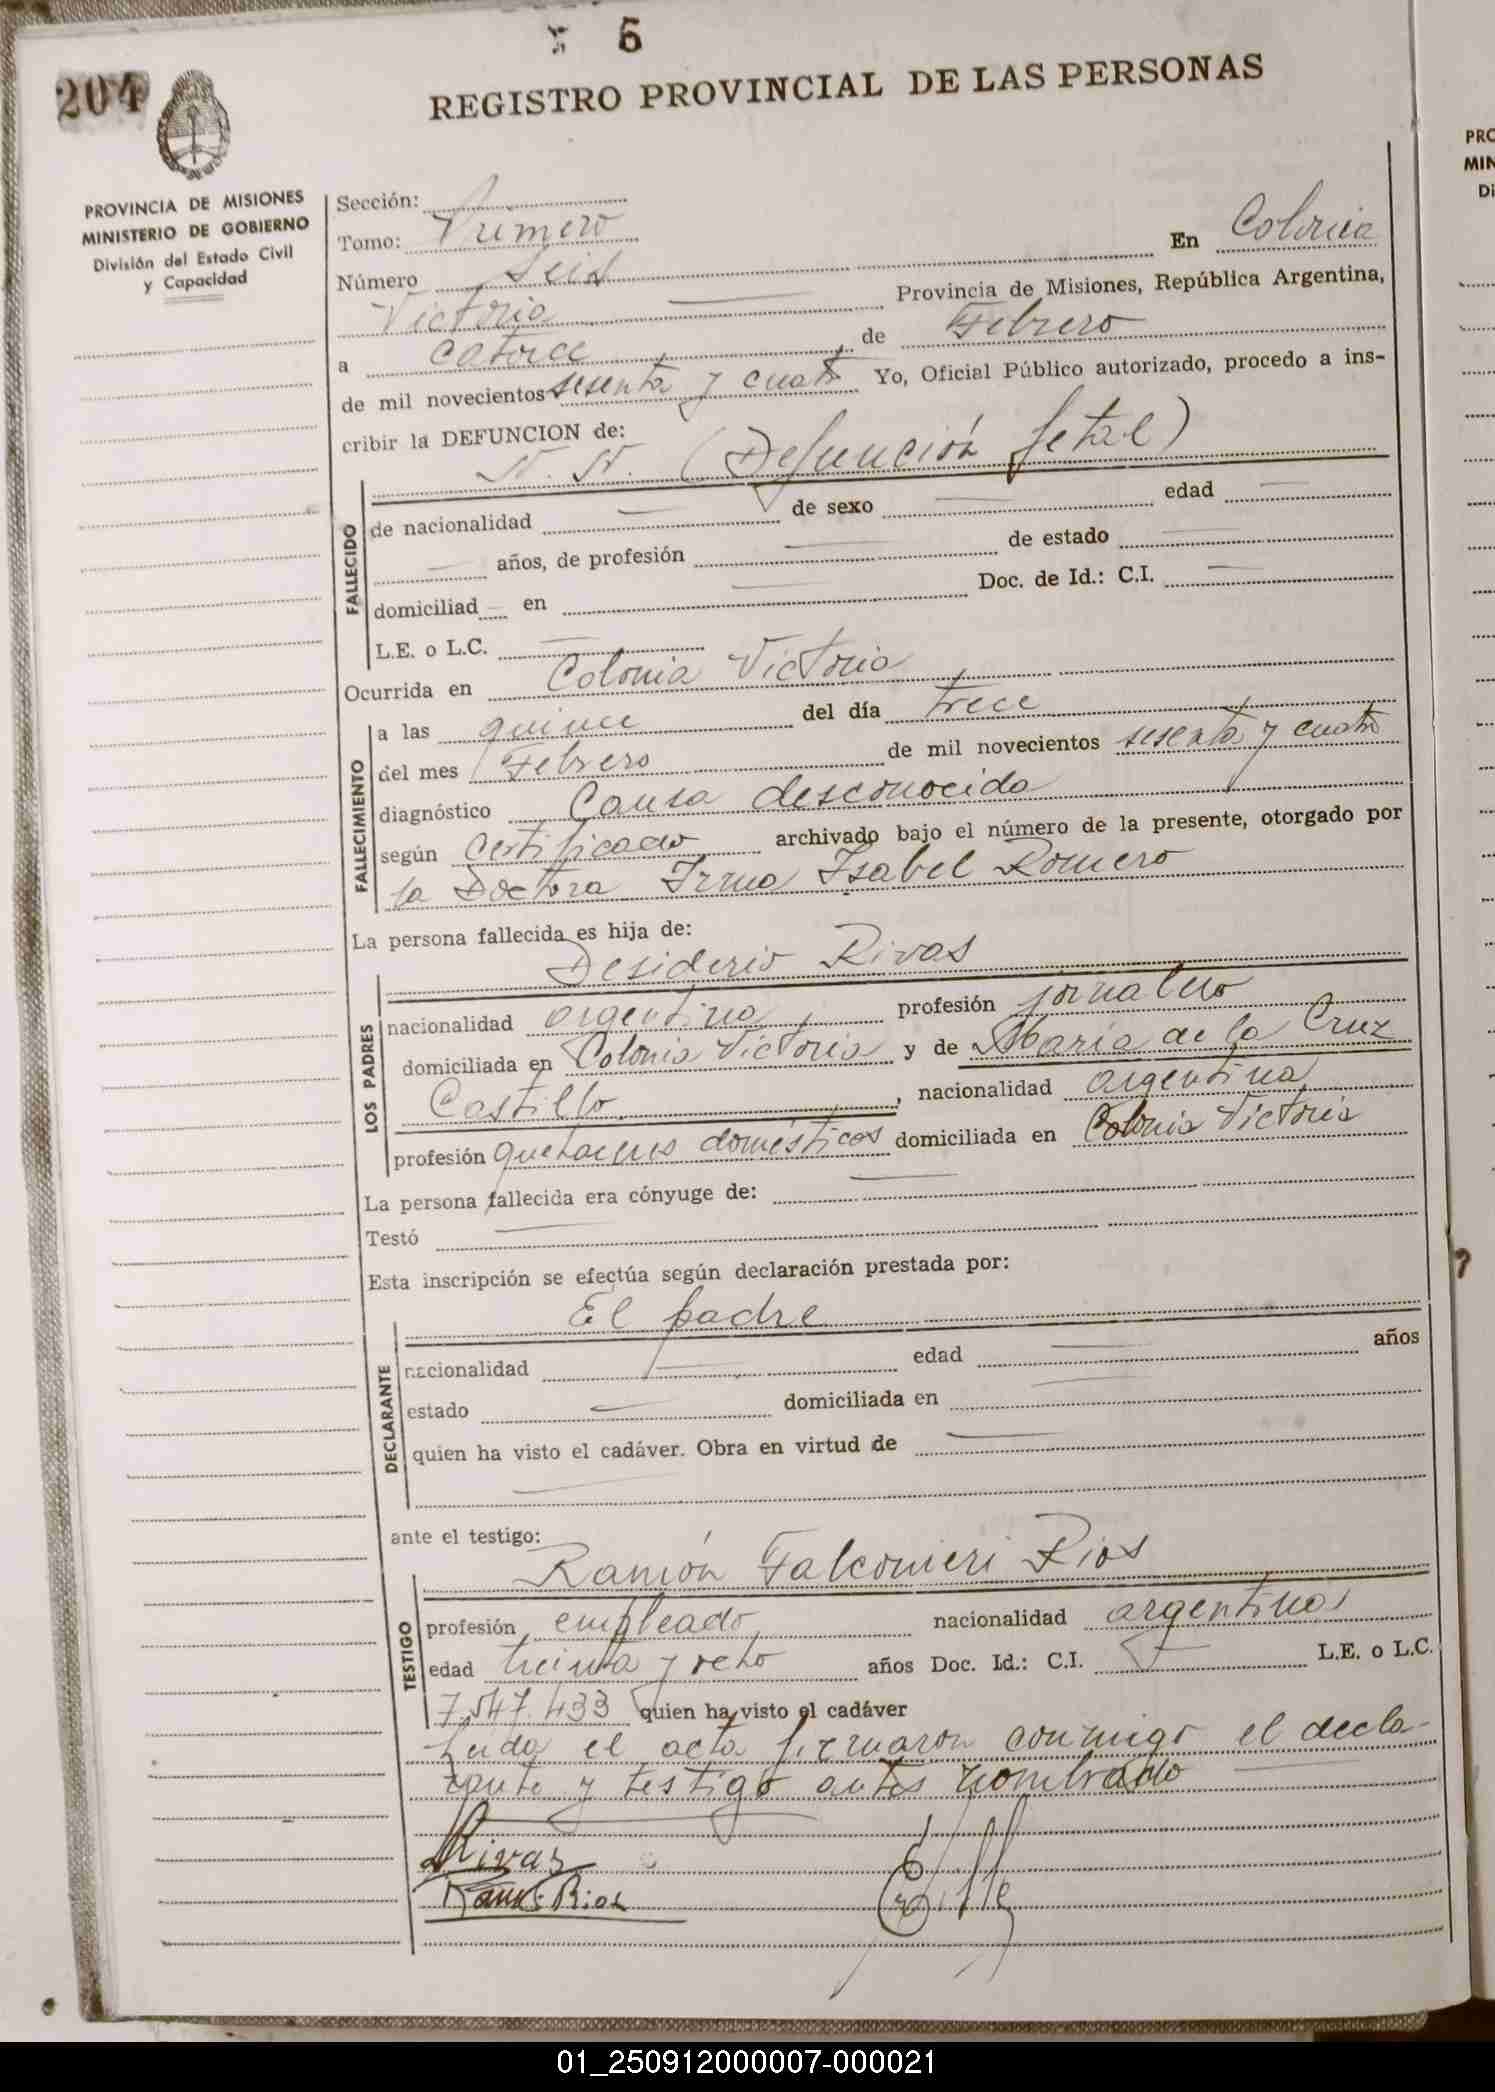 5
204
REGISTRO PROVINCIAL DE LAS PERSONAS
PROVINCIA DE MISIONES
MINISTERIO DE GOBIERNO
División del Estado Civil
y Capacidad
Sección:
Tomo: Primero
Número Seis En Colonia
Victoria Provincia de Misiones, República Argentina,
a catorce de Febrero
de mil novecientos sesenta y cuatro Yo, Oficial Público autorizado, procedo a ins-
cribir la DEFUNCION de:
N. N. (Defunción fetal)
FALLECIDO
de nacionalidad — de sexo — edad —
— años, de profesión — de estado —
domiciliad — en — Doc. de Id.: C.I. —
L.E. o L.C. —
Ocurrida en Colonia Victoria
FALLECIMIENTO
a las quince del día trece
del mes Febrero de mil novecientos sesenta y cuatro
diagnóstico Causa desconocida
según certificado archivado bajo el número de la presente, otorgado por
la Doctora Irma Isabel Romero
La persona fallecida es hija de:
Desiderio Rivas
LOS PADRES
nacionalidad argentina profesión jornalero
domiciliada en Colonia Victoria y de María de la Cruz
Castillo, nacionalidad argentina
profesión quehaceres domésticos domiciliada en Colonia Victoria
La persona fallecida era cónyuge de: —
Testó —
Esta inscripción se efectúa según declaración prestada por:
El padre
DECLARANTE
nacionalidad — edad — años
estado — domiciliada en —
quien ha visto el cadáver. Obra en virtud de —
—
ante el testigo:
Ramón Falconieri Rios
TESTIGO
profesión empleado nacionalidad argentina
edad treinta y ocho años Doc. Id.: C.I. — L.E. o L.C.
7.547.433 quien ha visto el cadáver
Leida el acta firmaron conmigo el decla-
rante y testigo antes nombrado —
Rivas
Ramón Rios
PRO
MIN
Di
01_250912000007-000021